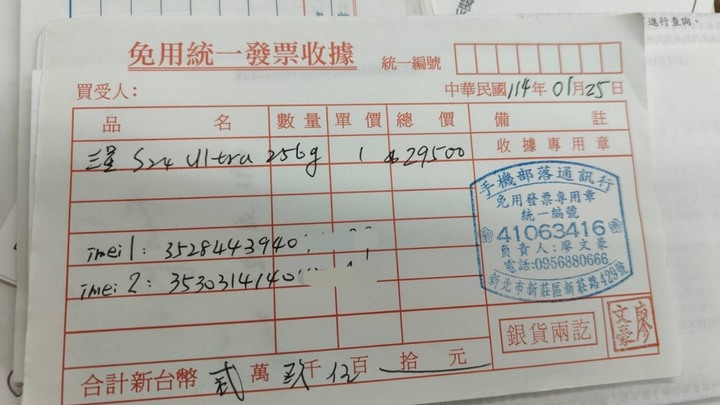 進行查詢。
免用統一發票收據 統一編號
買受人: 中華民國114年01月25日
品名 數量 單價 總價 備註
收據專用章
三星 S24 Ultra 256g 1 $29500
手機部落通訊行
免用發票專用章
統一編號
41063416
負責人:廖文豪
電話:0956880666
新北市新莊區新莊路429號
imei 1: 3528443940
imei 2: 3530314140
銀貨兩訖
廖文豪
合計新台幣 貳萬玖千伍百拾元